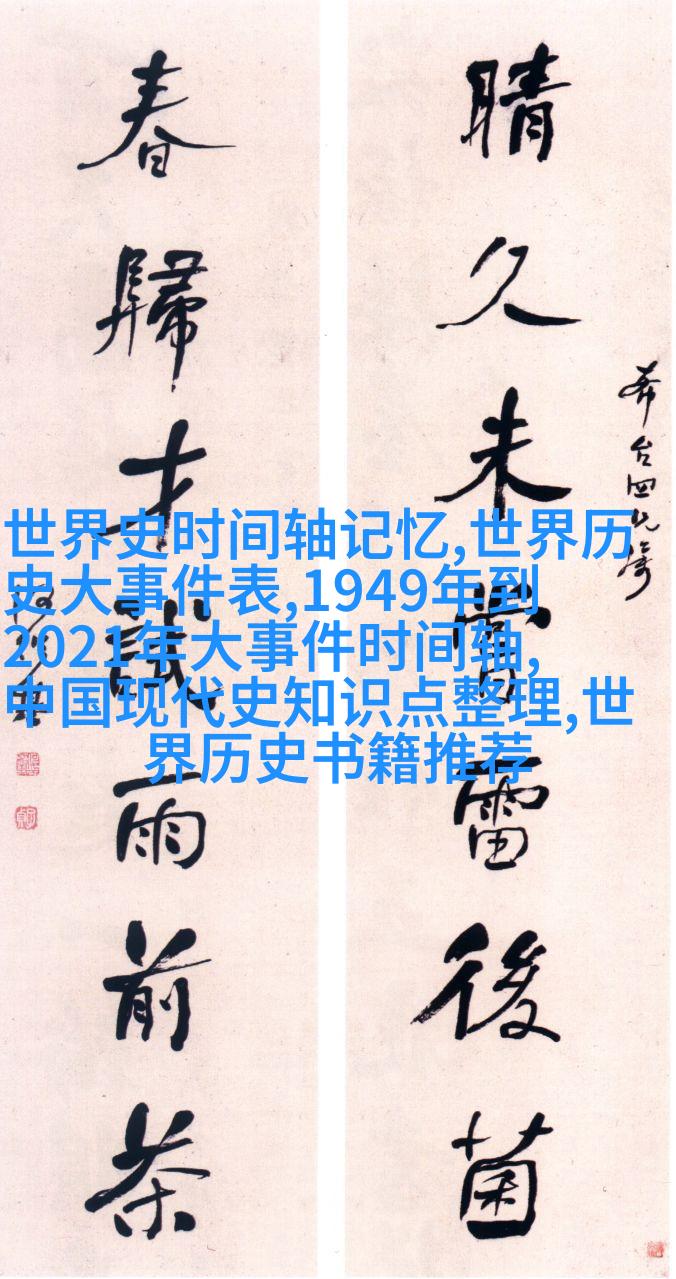 晴久未嘗雷後菌
春歸才雨前茶
世界史时间轴记忆,世界历
史大事件表,1949年到
2021年大事件时间轴,
中国现代史知识点整理,世
界历史书籍推荐